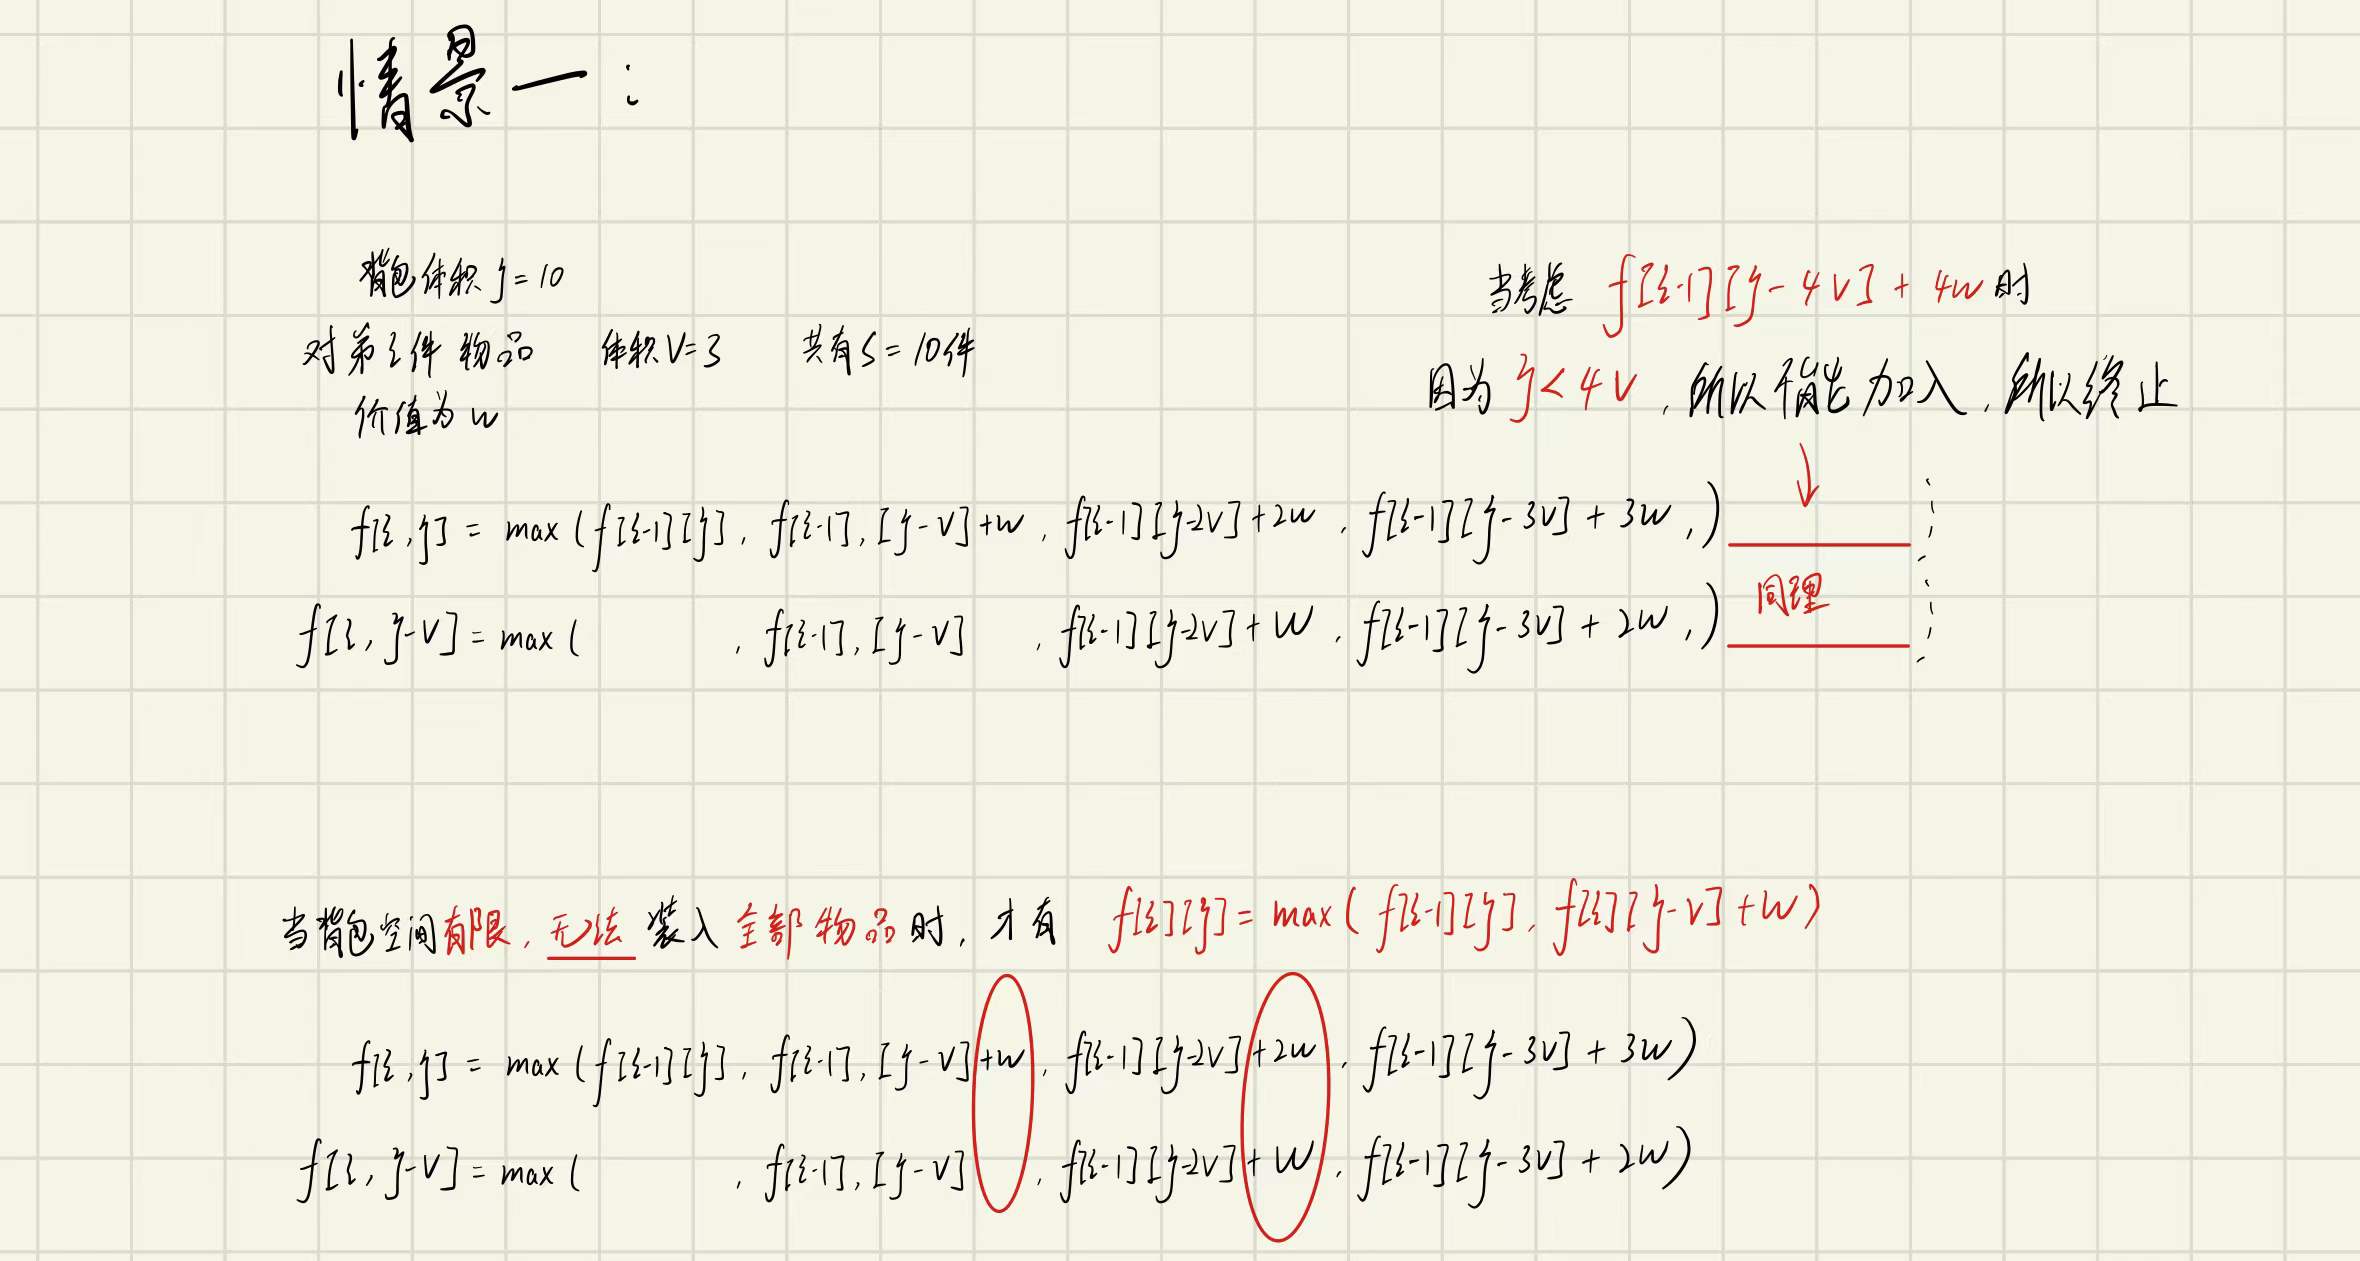 情景一:
背包体积 j = 10
对第 i 件 物品 体积 V = 3 共有 S = 10 件
价值为 w
当考虑 f[i-1][j - 4v] + 4w 时
因为 j < 4v , 所以不能加入 , 所以终止
f[i , j] = max ( f[i-1][j] , f[i-1], [j - v] + w , f[i-1][j-2v] + 2w , f[i-1][j - 3v] + 3w , )
同理
f[i , j-v] = max ( , f[i-1], [j - v] , f[i-1][j-2v] + w , f[i-1][j - 3v] + 2w , )
当背包空间有限 , 无法 装入 全部 物品 时 , 才有 f[i][j] = max ( f[i-1][j] , f[i][j - v] + w )
f[i , j] = max ( f[i-1][j] , f[i-1], [j - v] + w , f[i-1][j-2v] + 2w , f[i-1][j - 3v] + 3w )
f[i , j-v] = max ( , f[i-1], [j - v] , f[i-1][j-2v] + w , f[i-1][j - 3v] + 2w )